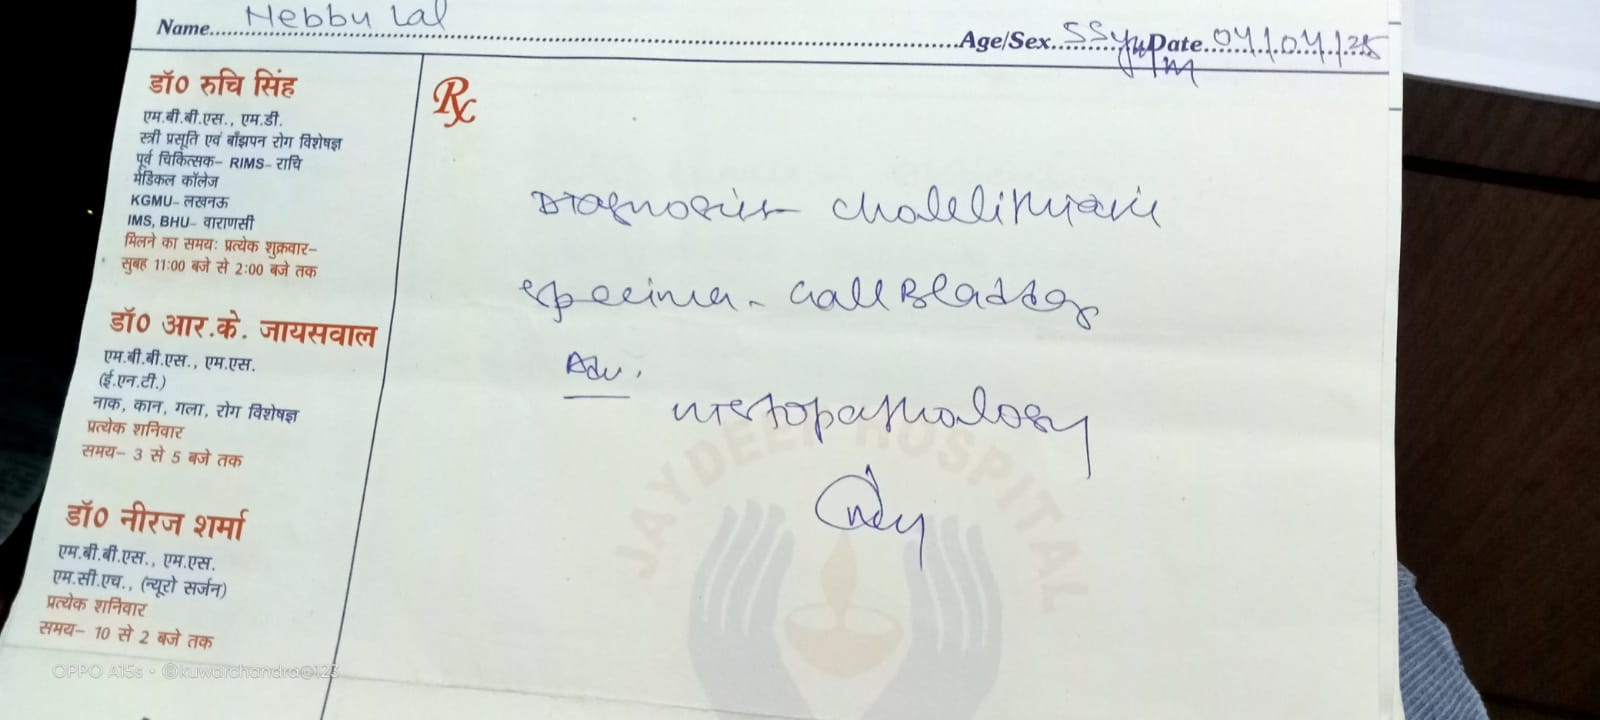 Name Nebbu Lal Age/Sex 55yr/M Date 04/04/25
डॉ0 रुचि सिंह
एम.बी.बी.एस., एम.डी.
स्त्री प्रसूति एवं बाँझपन रोग विशेषज्ञ
पूर्व चिकित्सक– RIMS– राचि
मेडिकल कॉलेज
KGMU– लखनऊ
IMS, BHU– वाराणसी
मिलने का समयः प्रत्येक शुक्रवार–
सुबह 11:00 बजे से 2:00 बजे तक
डॉ0 आर.के. जायसवाल
एम.बी.बी.एस., एम.एस.
(ई.एन.टी.)
नाक, कान, गला, रोग विशेषज्ञ
प्रत्येक शनिवार
समय– 3 से 5 बजे तक
डॉ0 नीरज शर्मा
एम.बी.बी.एस., एम.एस.
एम.सी.एच., (न्यूरो सर्जन)
प्रत्येक शनिवार
समय– 10 से 2 बजे तक
Rx
Diagnosis- cholelithiasis
specimen - Gall Bladder
Adv.
Histopathology
JAYDEEP HOSPITAL
OPPO A15s • @kuwarchandra@123